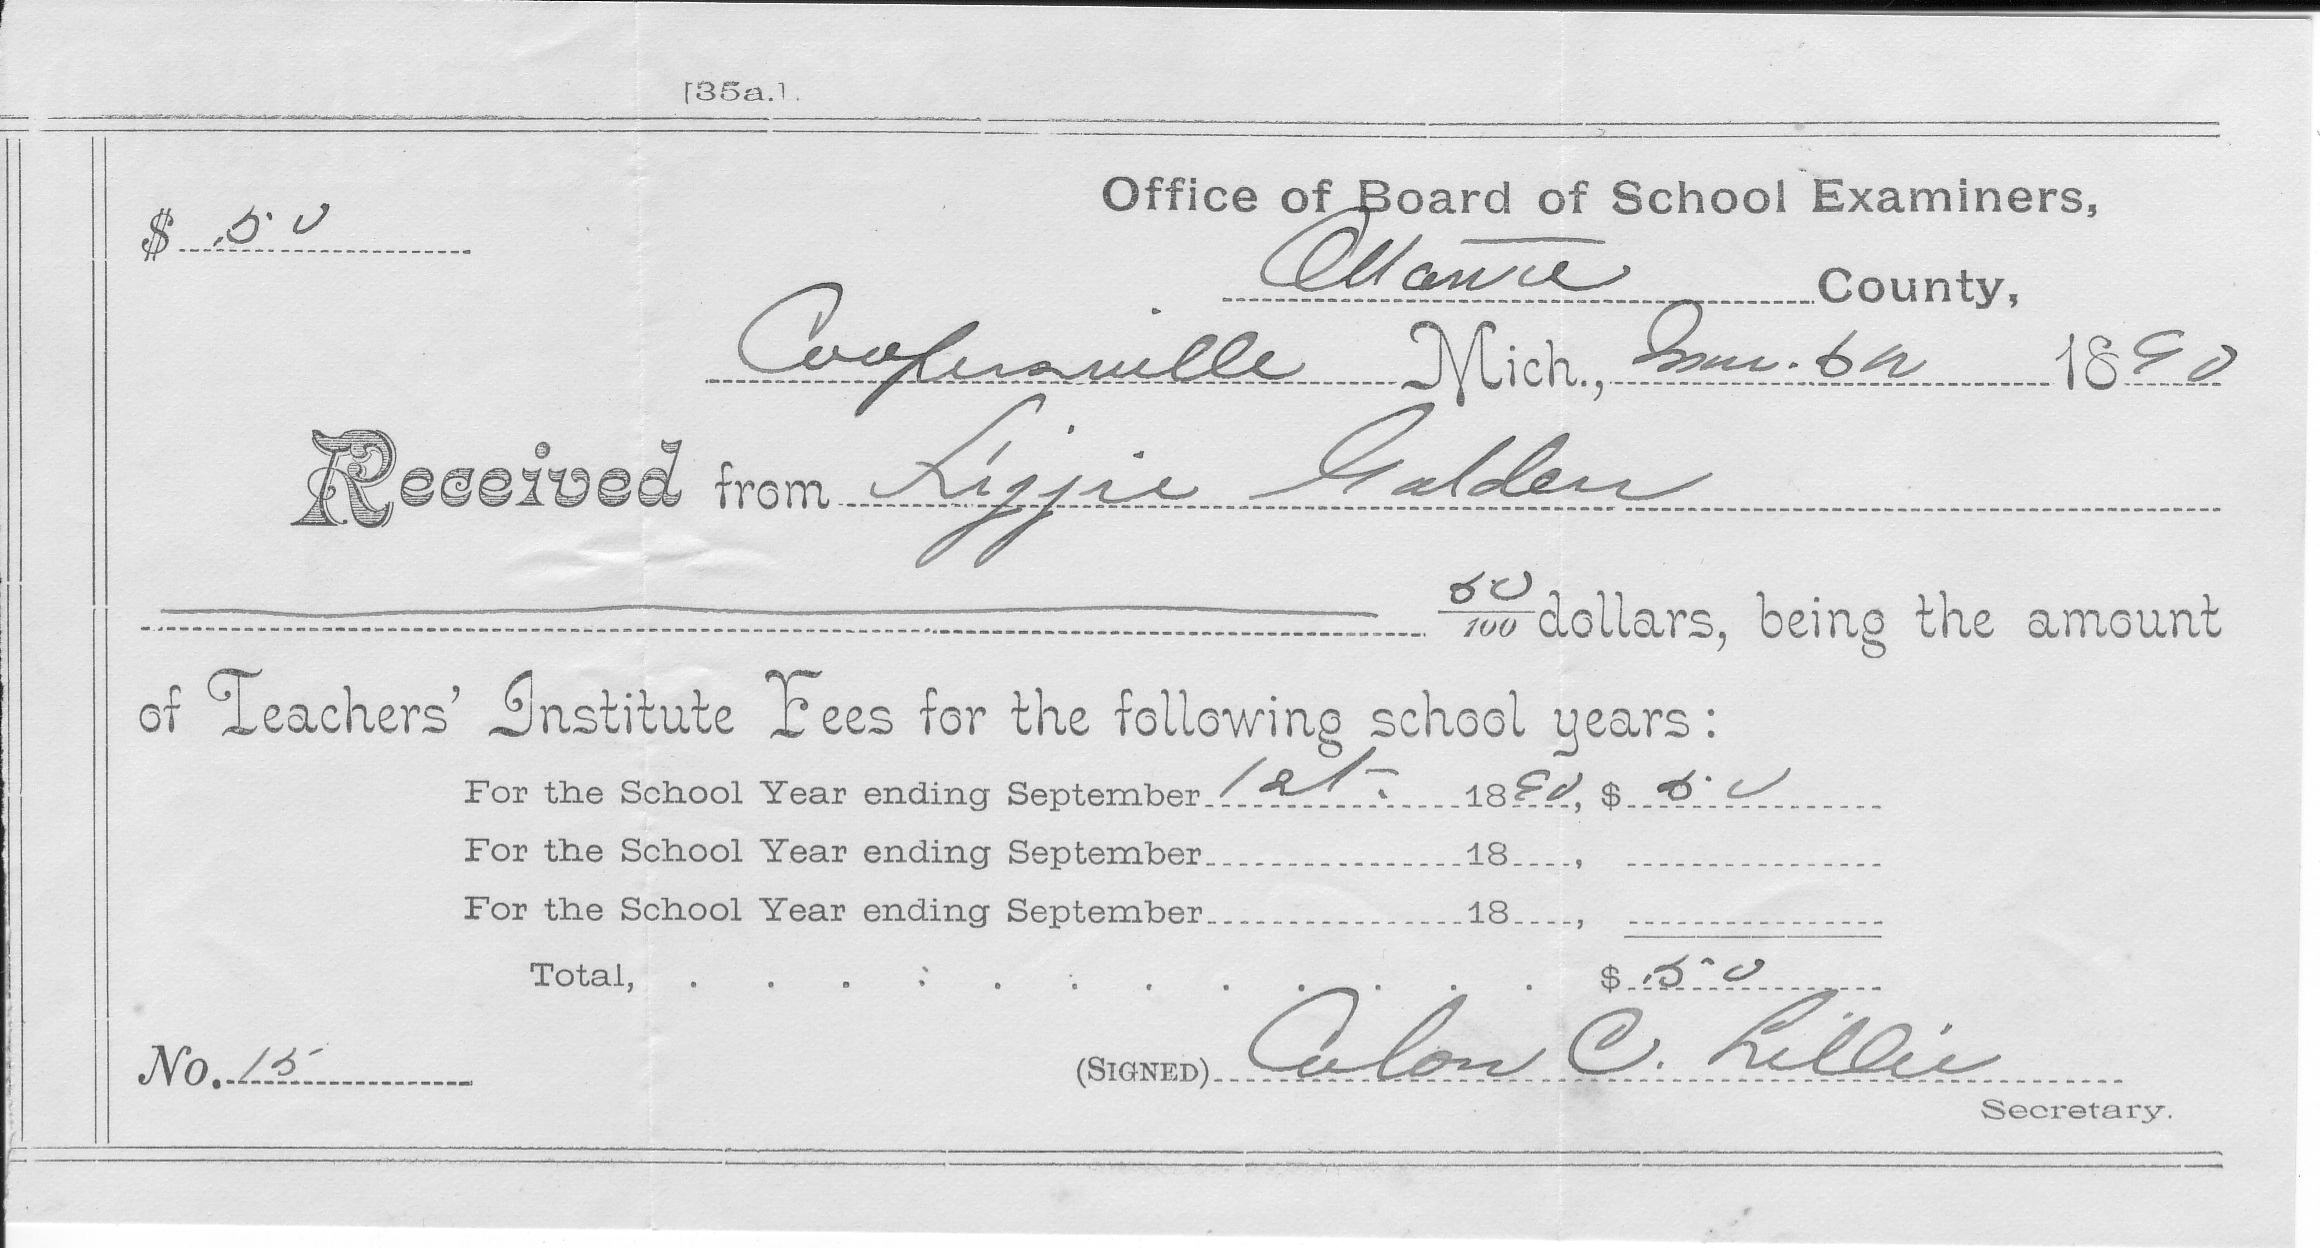 [35a.].
Office of Board of School Examiners,
$ .50
Ottawa County,
Coopersville Mich., Mar. 6th 1890
Received from Lizzie Golden
50/100 dollars, being the amount
of Teachers' Institute Fees for the following school years:
For the School Year ending September 1st. 1890, $ 50
For the School Year ending September 18 ,
For the School Year ending September 18 ,
Total, . . . : . . . . . . . . $ .50
No. 15
(SIGNED) Colon C. Lillie
Secretary.